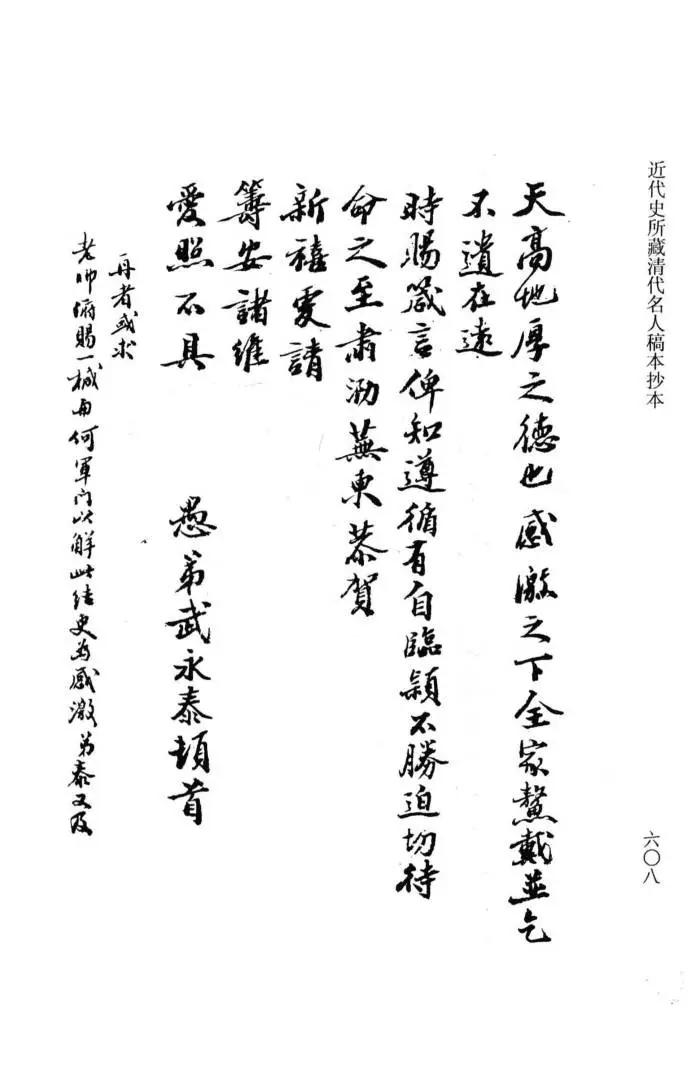 近代史所藏清代名人稿本抄本
天高地厚之德也感激之下全家鰲戴並乞
不遺在遠
時賜箴言俾知遵循有自臨穎不勝迫切待
命之至肅泐蕪柬恭賀
新禧雯請
籌安諸維
愛照不具
愚弟武永泰頓首
再者或求
老帅俯賜一椷与何軍门以解此结更为感激弟泰又及
六〇八